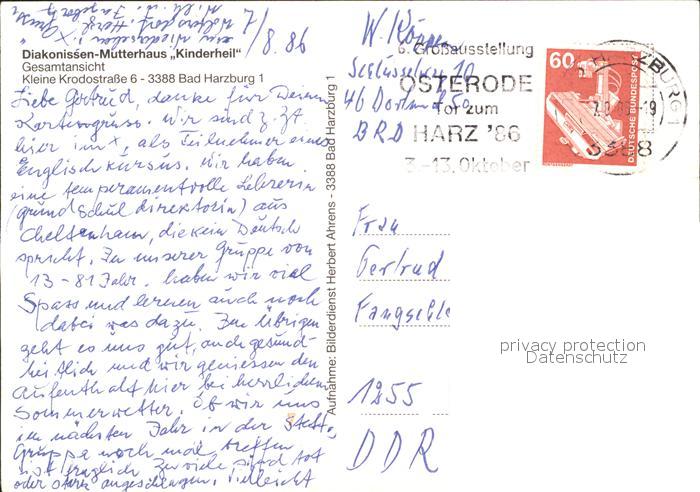 7/8.86
Diakonissen-Mutterhaus „Kinderheil"
Gesamtansicht
Kleine Krodostraße 6 - 3388 Bad Harzburg 1
Liebe Gertrud, danke für Deinen
Kartengruss. Wir sind z. Zt.
hier im x, als Teilnehmer eines
Englischkursus. Wir haben
eine temperamentvolle Lehrerin
(Grundschuldirektorin) aus
Cheltenham, die kein Deutsch
spricht. In unserer Gruppe von
13 - 81 Jahr. haben wir viel
Spass und lernen auch noch
dabei was dazu. Im Übrigen
geht es uns gut, auch gesund-
heitlich und wir geniessen den
Aufenthalt hier bei herrlichem
Sommerwetter. Ob wir uns
im nächsten Jahr in der
Gruppe noch mal treffen
ist fraglich. Zu viele sind tot
oder stark angeschlagen. Vielleicht
Aufnahme: Bilderdienst Herbert Ahrens - 3388 Bad Harzburg 1
W. Köppen
46 Dortmund 50
BRD
6. Großausstellung
OSTERODE
Tor zum
HARZ '86
3.-13. Oktober
HARZBURG 1
3388
60
DEUTSCHE BUNDESPOST
Frau
Gertrud
Fangschle
1255
DDR
privacy protection
Datenschutz